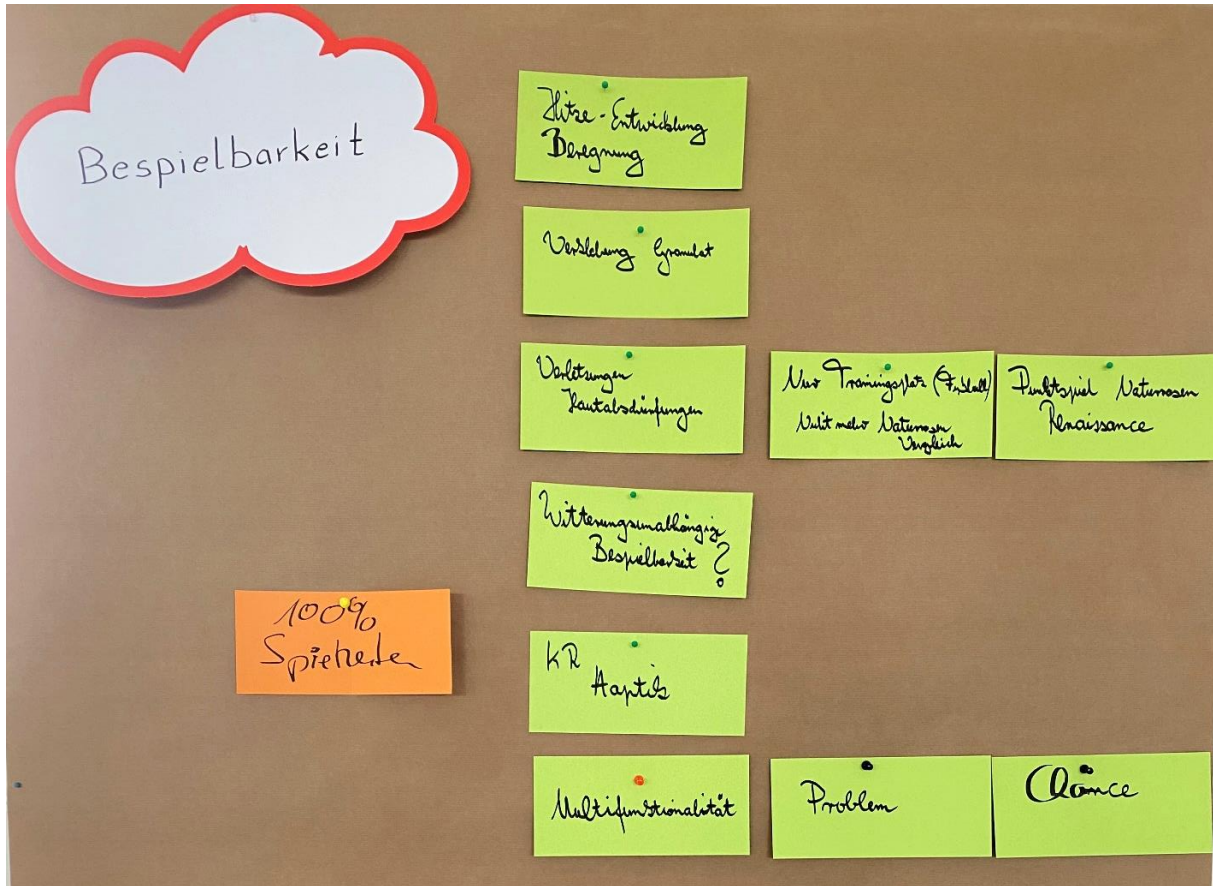 Bespielbarkeit
Hitze-Entwicklung
Beregnung
Verklebung Granulat
Verletzungen
Hautabschürfungen
Nur Trainingsplatz (Fußball)
Nicht mehr Naturrasen
Vergleich
Punktspiel Naturrasen
Renaissance
Witterungsunabhängige
Bespielbarkeit ?
100%
Spielzeiten
KR
Haptik
Multifunktionalität
Problem
Chance